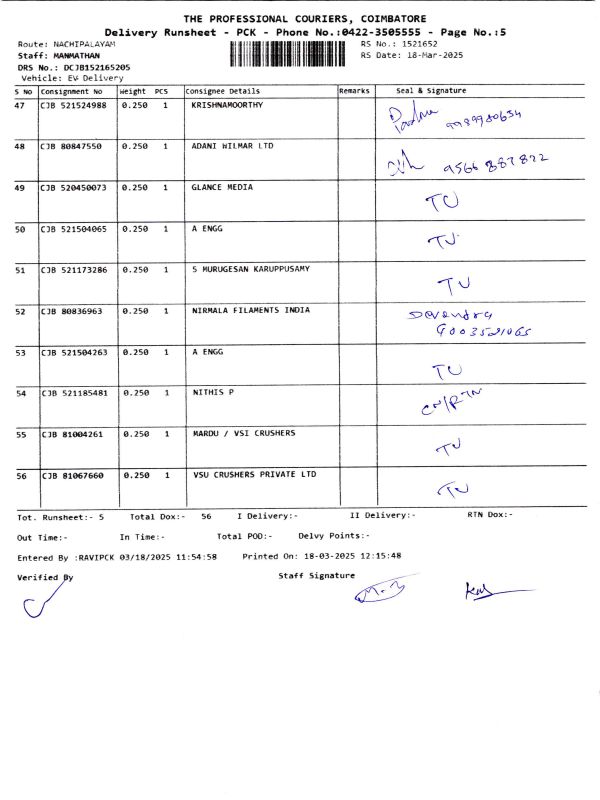 THE PROFESSIONAL COURIERS, COIMBATORE
Delivery Runsheet - PCK - Phone No.:0422-3505555 - Page No.:5
Route: NACHIPALAYAM RS No.: 1521652
Staff: MANMATHAN RS Date: 18-Mar-2025
DRS No.: DCJB152165205
Vehicle: EV Delivery
S No Consignment No Weight PCS Consignee Details Remarks Seal & Signature
47 CJB 521524988 0.250 1 KRISHNAMOORTHY
48 CJB 80847550 0.250 1 ADANI WILMAR LTD 9566 887822
49 CJB 520450073 0.250 1 GLANCE MEDIA TU
50 CJB 521504065 0.250 1 A ENGG TU
51 CJB 521173286 0.250 1 S MURUGESAN KARUPPUSAMY TU
52 CJB 80836963 0.250 1 NIRMALA FILAMENTS INDIA Devendra
53 CJB 521504263 0.250 1 A ENGG TU
54 CJB 521185481 0.250 1 NITHIS P CN/RTN
55 CJB 81004261 0.250 1 MARDU / VSI CRUSHERS TU
56 CJB 81067660 0.250 1 VSU CRUSHERS PRIVATE LTD TU
Tot. Runsheet:- 5 Total Dox:- 56 I Delivery:- II Delivery:- RTN Dox:-
Out Time:- In Time:- Total POD:- Delvy Points:-
Entered By :RAVIPCK 03/18/2025 11:54:58 Printed On: 18-03-2025 12:15:48
Verified By Staff Signature